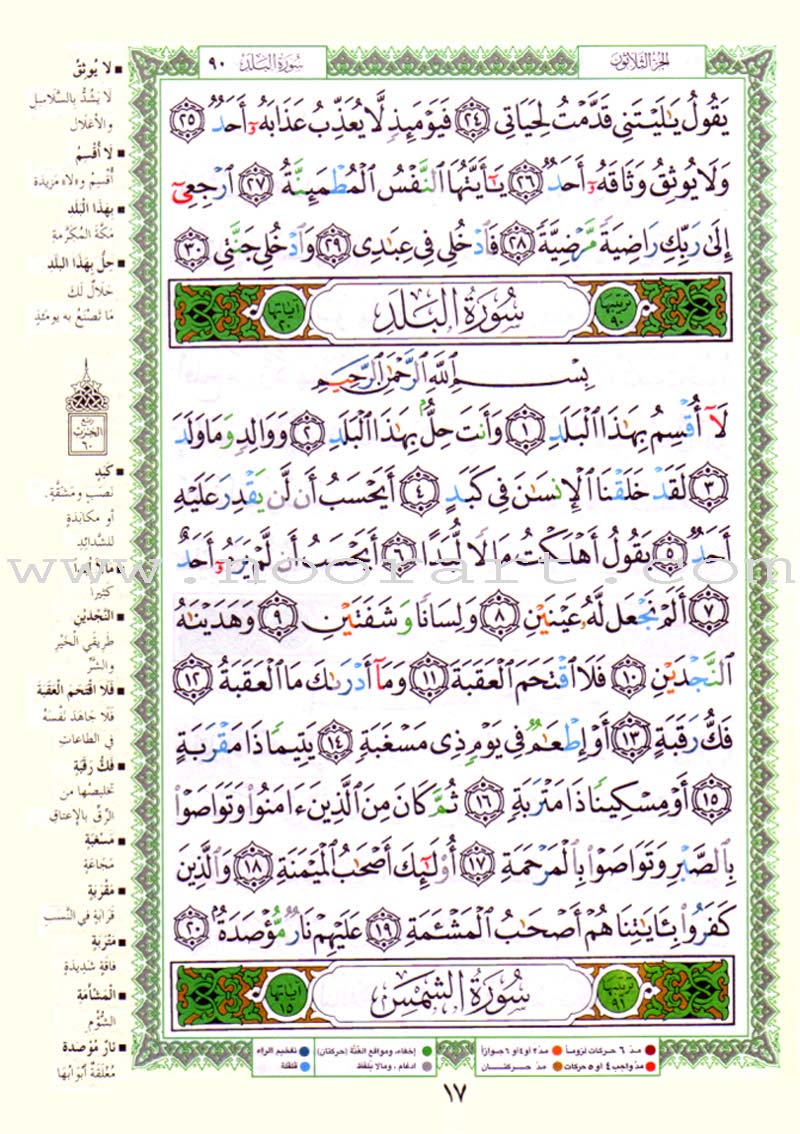 الجزء الثلاثون
سورة البلد ٩٠
يَقُولُ يَٰلَيْتَنِى قَدَّمْتُ لِحَيَاتِى ٢٤ فَيَوْمَئِذٍ لَّا يُعَذِّبُ عَذَابَهُۥٓ أَحَدٌ ٢٥
وَلَا يُوثِقُ وَثَاقَهُۥٓ أَحَدٌ ٢٦ يَٰٓأَيَّتُهَا ٱلنَّفْسُ ٱلْمُطْمَئِنَّةُ ٢٧ ٱرْجِعِىٓ
إِلَىٰ رَبِّكِ رَاضِيَةً مَّرْضِيَّةً ٢٨ فَٱدْخُلِى فِى عِبَٰدِى ٢٩ وَٱدْخُلِى جَنَّتِى ٣٠
ترتيبها ٩٠ سُورَةُ البَلَدِ آياتها ٢٠
بِسْمِ ٱللَّهِ ٱلرَّحْمَٰنِ ٱلرَّحِيمِ
لَآ أُقْسِمُ بِهَٰذَا ٱلْبَلَدِ ١ وَأَنتَ حِلٌّۢ بِهَٰذَا ٱلْبَلَدِ ٢ وَوَالِدٍ وَمَا وَلَدَ
٣ لَقَدْ خَلَقْنَا ٱلْإِنسَٰنَ فِى كَبَدٍ ٤ أَيَحْسَبُ أَن لَّن يَقْدِرَ عَلَيْهِ
أَحَدٌ ٥ يَقُولُ أَهْلَكْتُ مَالًا لُّبَدًا ٦ أَيَحْسَبُ أَن لَّمْ يَرَهُۥٓ أَحَدٌ
٧ أَلَمْ نَجْعَل لَّهُۥ عَيْنَيْنِ ٨ وَلِسَانًا وَشَفَتَيْنِ ٩ وَهَدَيْنَٰهُ
ٱلنَّجْدَيْنِ ١٠ فَلَا ٱقْتَحَمَ ٱلْعَقَبَةَ ١١ وَمَآ أَدْرَىٰكَ مَا ٱلْعَقَبَةُ ١٢
فَكُّ رَقَبَةٍ ١٣ أَوْ إِطْعَٰمٌ فِى يَوْمٍ ذِى مَسْغَبَةٍ ١٤ يَتِيمًا ذَا مَقْرَبَةٍ
١٥ أَوْ مِسْكِينًا ذَا مَتْرَبَةٍ ١٦ ثُمَّ كَانَ مِنَ ٱلَّذِينَ ءَامَنُوا۟ وَتَوَاصَوْا۟
بِٱلصَّبْرِ وَتَوَاصَوْا۟ بِٱلْمَرْحَمَةِ ١٧ أُو۟لَٰٓئِكَ أَصْحَٰبُ ٱلْمَيْمَنَةِ ١٨ وَٱلَّذِينَ
كَفَرُوا۟ بِـَٔايَٰتِنَا هُمْ أَصْحَٰبُ ٱلْمَشْـَٔمَةِ ١٩ عَلَيْهِمْ نَارٌ مُّؤْصَدَةٌۢ ٢٠
ترتيبها ٩١ سُورَةُ الشَّمْسِ آياتها ١٥
لا يُوثِقُ
لَا يَشُدُّ بالسَّلَاسِلِ
والأغلال
لَا أُقْسِمُ
أُقْسِمُ و«لا» مَزيدة
بهَذَا البَلَدِ
مَكَّةَ المكرَّمةِ
حِلٌّ بِهَذَا البَلَدِ
حَلالٌ لَكَ
مَا تَصْنَعُ به يومئذٍ
ربع
الحزب
٦٠
كَبَدٍ
نَصَبٍ ومَشَقَّةٍ.
أو مكابَدةٍ
للشَّدائِدِ
مَالًا لُبَدًا
كثيرا
النَّجْدَينِ
طَرِيقَي الخَيْرِ
والشَّرِّ
فَلَا اقْتَحَمَ العَقَبَةَ
فَلَا جَاهَدَ نَفْسَهُ
في الطاعاتِ
فَكُّ رَقَبَةٍ
تخليصُها من
الرِّقِّ بالإعتاق
مَسْغَبَةٍ
مَجَاعَةٍ
مَقْرَبَةٍ
قَرَابَةٍ في النَّسَبِ
مَتْرَبَةٍ
فاقَةٍ شَدِيدَةٍ
المَشْأَمَةِ
الشُّؤْمِ
نَارٌ مُوْصَدَة
مُغْلَقَةٌ أَبْوَابُهَا
مدّ ٦ حركات لزوماً
مدّ ٢ أو ٤ أو ٦ جوازاً
إخفاء، ومواقع الغنّة (حركتان)
تفخيم الراء
مدّ واجب ٤ أو ٥ حركات
مدّ حركتان
ادغام، ومالا يُلفظ
قلقلة
١٧
www.noorart.com